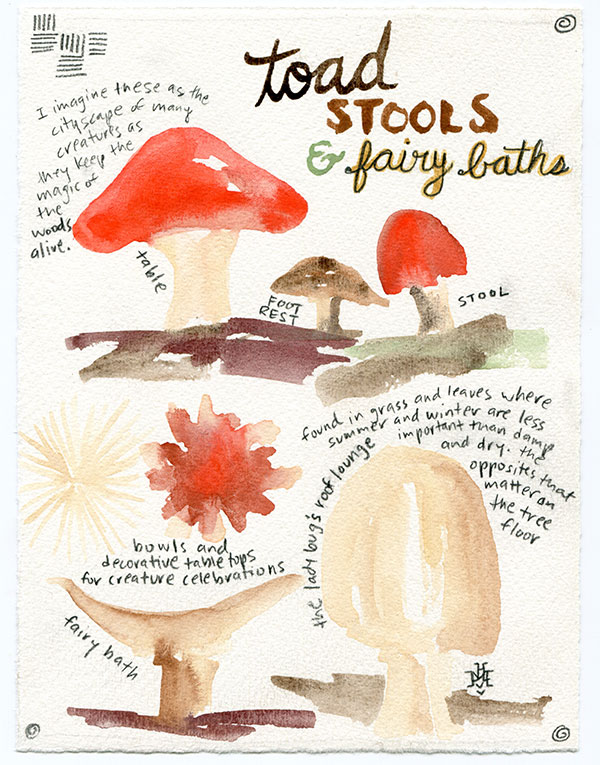 toad
STOOLS
& fairy baths
I imagine these as the
cityscape of many
creatures as
they keep the
magic of
the
woods
alive.
table
FOOT
REST
STOOL
found in grass and leaves where
summer and winter are less
important than damp
and dry. the
opposites that
matter on
the tree
floor
the lady bug's roof lounge
bowls and
decorative table tops
for creature celebrations
fairy bath